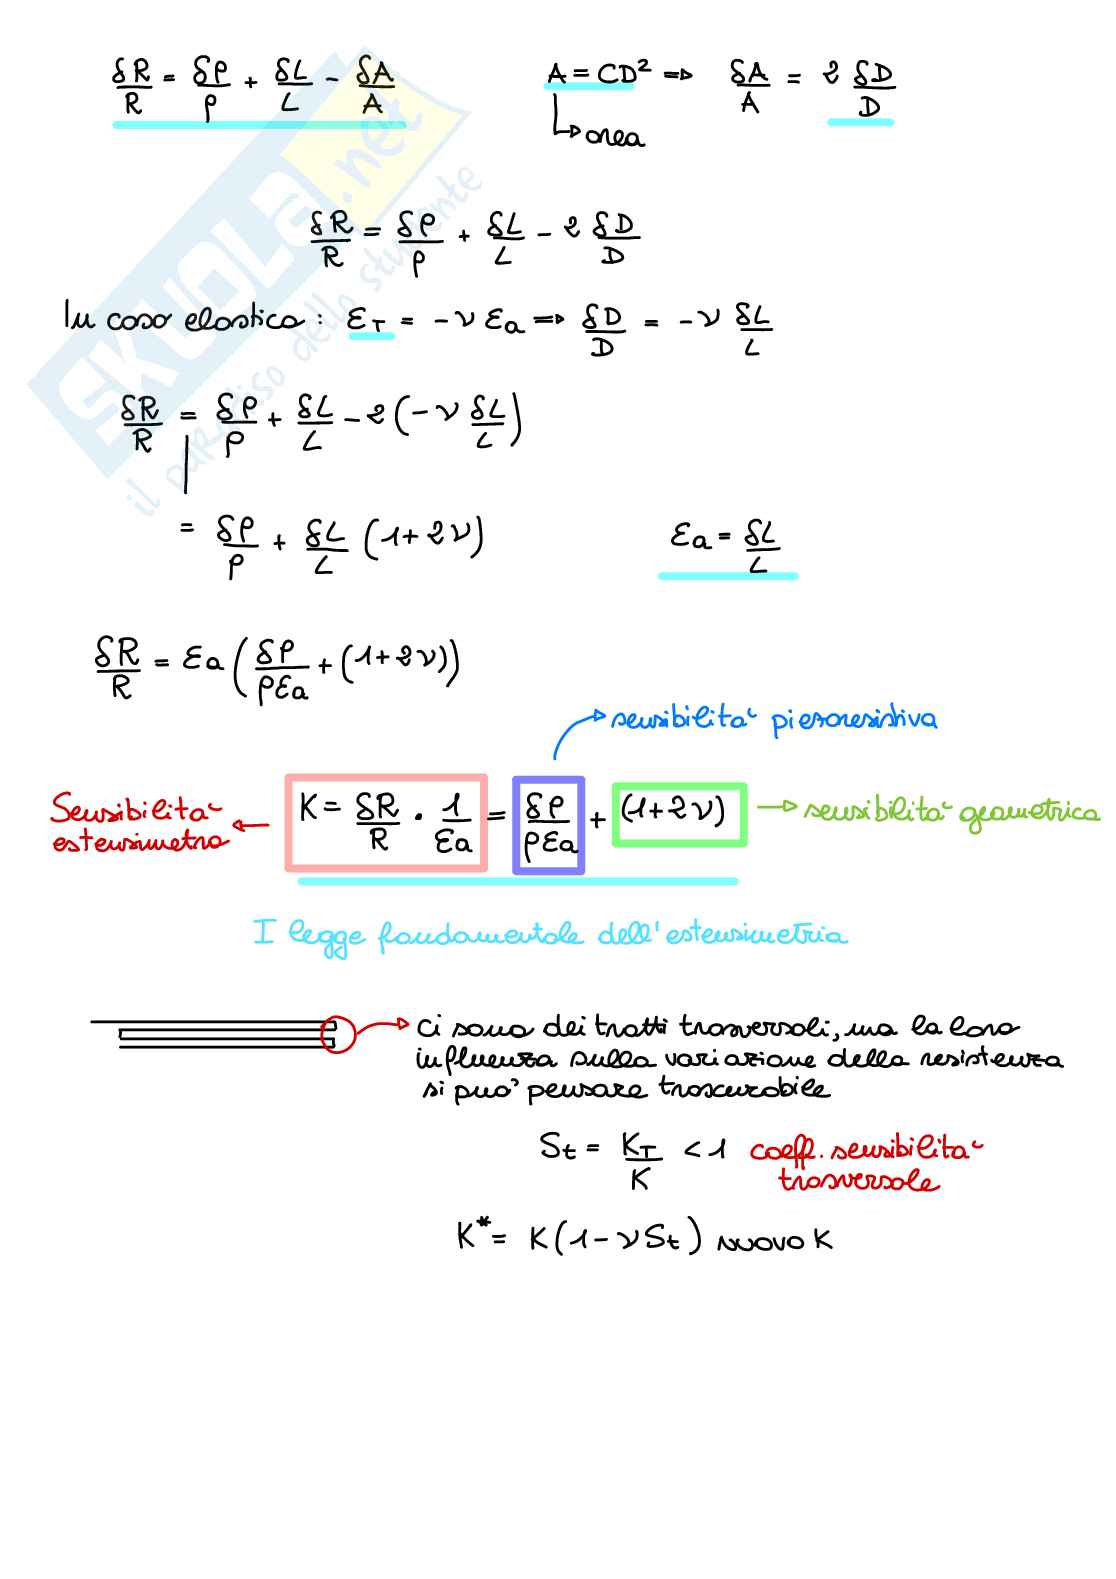 δR/R = δρ/ρ + δL/L - δA/A
A = CD² => δA/A = 2 δD/D
area
δR/R = δρ/ρ + δL/L - 2 δD/D
In caso elastico: ε_T = -ν ε_a => δD/D = -ν δL/L
δR/R = δρ/ρ + δL/L - 2(-ν δL/L)
= δρ/ρ + δL/L (1+2ν)
ε_a = δL/L
δR/R = ε_a (δρ/ρε_a + (1+2ν))
sensibilità piezoresistiva
Sensibilità
estensimetro
K = δR/R · 1/ε_a = δρ/ρε_a + (1+2ν)
sensibilità geometrica
I legge fondamentale dell'estensimetria
ci sono dei tratti trasversali, ma la loro
influenza sulla variazione della resistenza
si può pensare trascurabile
S_t = K_T/K < 1
coeff. sensibilità
trasversale
K* = K(1-νS_t) nuovo K
SKUOLA.net
il paradiso dello studente